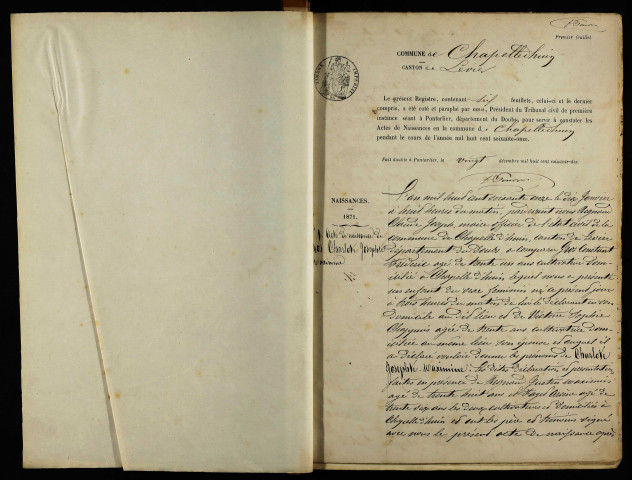 Premier feuillet
COMMUNE de Chapelle d'huin
CANTON de Levier
Le présent Registre, contenant six feuillets, celui-ci et le dernier
compris, a été coté et paraphé par nous, Président du Tribunal civil de première
instance séant à Pontarlier, département du Doubs, pour servir à constater les
Actes de Naissances en la commune de Chapelle d'huin
pendant le cours de l'année mil huit cent soixante-onze.
Fait double à Pontarlier, le vingt décembre mil huit cent soixante-dix
NAISSANCES.
1871.
Acte de naissance de
Charlotte Josephte
Maximine
L'an mil huit cent soixante onze le dix Janvier
à huit heures du matin, pardevant nous Regnaud
Claude Joseph, maire officier de l'état civil de la
commune de Chapelle d'huin canton de Levier
département du Doubs a comparu
Frédéric agé de trente un ans cultivateur domi-
cilié à Chapelle d'huin lequel nous a présenté
un enfant du sexe féminin né ce présent jour
à trois heures du matin de lui le déclarant en son
domicile au dit lieu et de Victoire Sophie
agée de trente ans cultivatrice dom-
iciliée au même lieu son épouse et auquel il
a déclaré vouloir donner les prénoms de Charlotte
Josephte Maximine. Les dites déclaration et présentation
faites en présence de Regnaud Justin
agé de trente huit ans et agé de
trente six ans les deux cultivateurs et domiciliés à
Chapelle d'huin et ont les père et témoins signé
avec nous le présent acte de naissance après